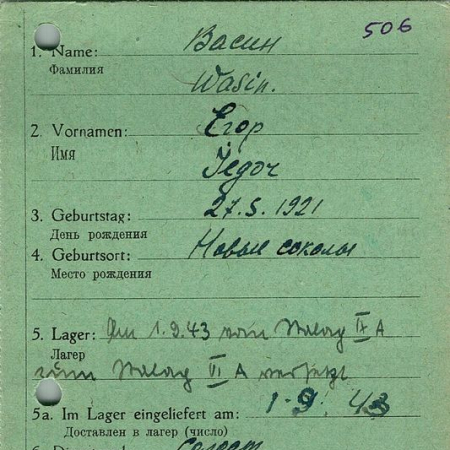 506
1. Name: Васин
Фамилия
Wasin.
2. Vornamen: Егор
Имя
Jegor
3. Geburtstag: 27.5.1921
День рождения
4. Geburtsort: Новые соколы
Место рождения
5. Lager: Am 1.9.43 vom Stalag IX A
Лагер
zum Stalag VI A versetzt
5a. Im Lager eingeliefert am: 1.9.43
Доставлен в лагер (число)
Солдат